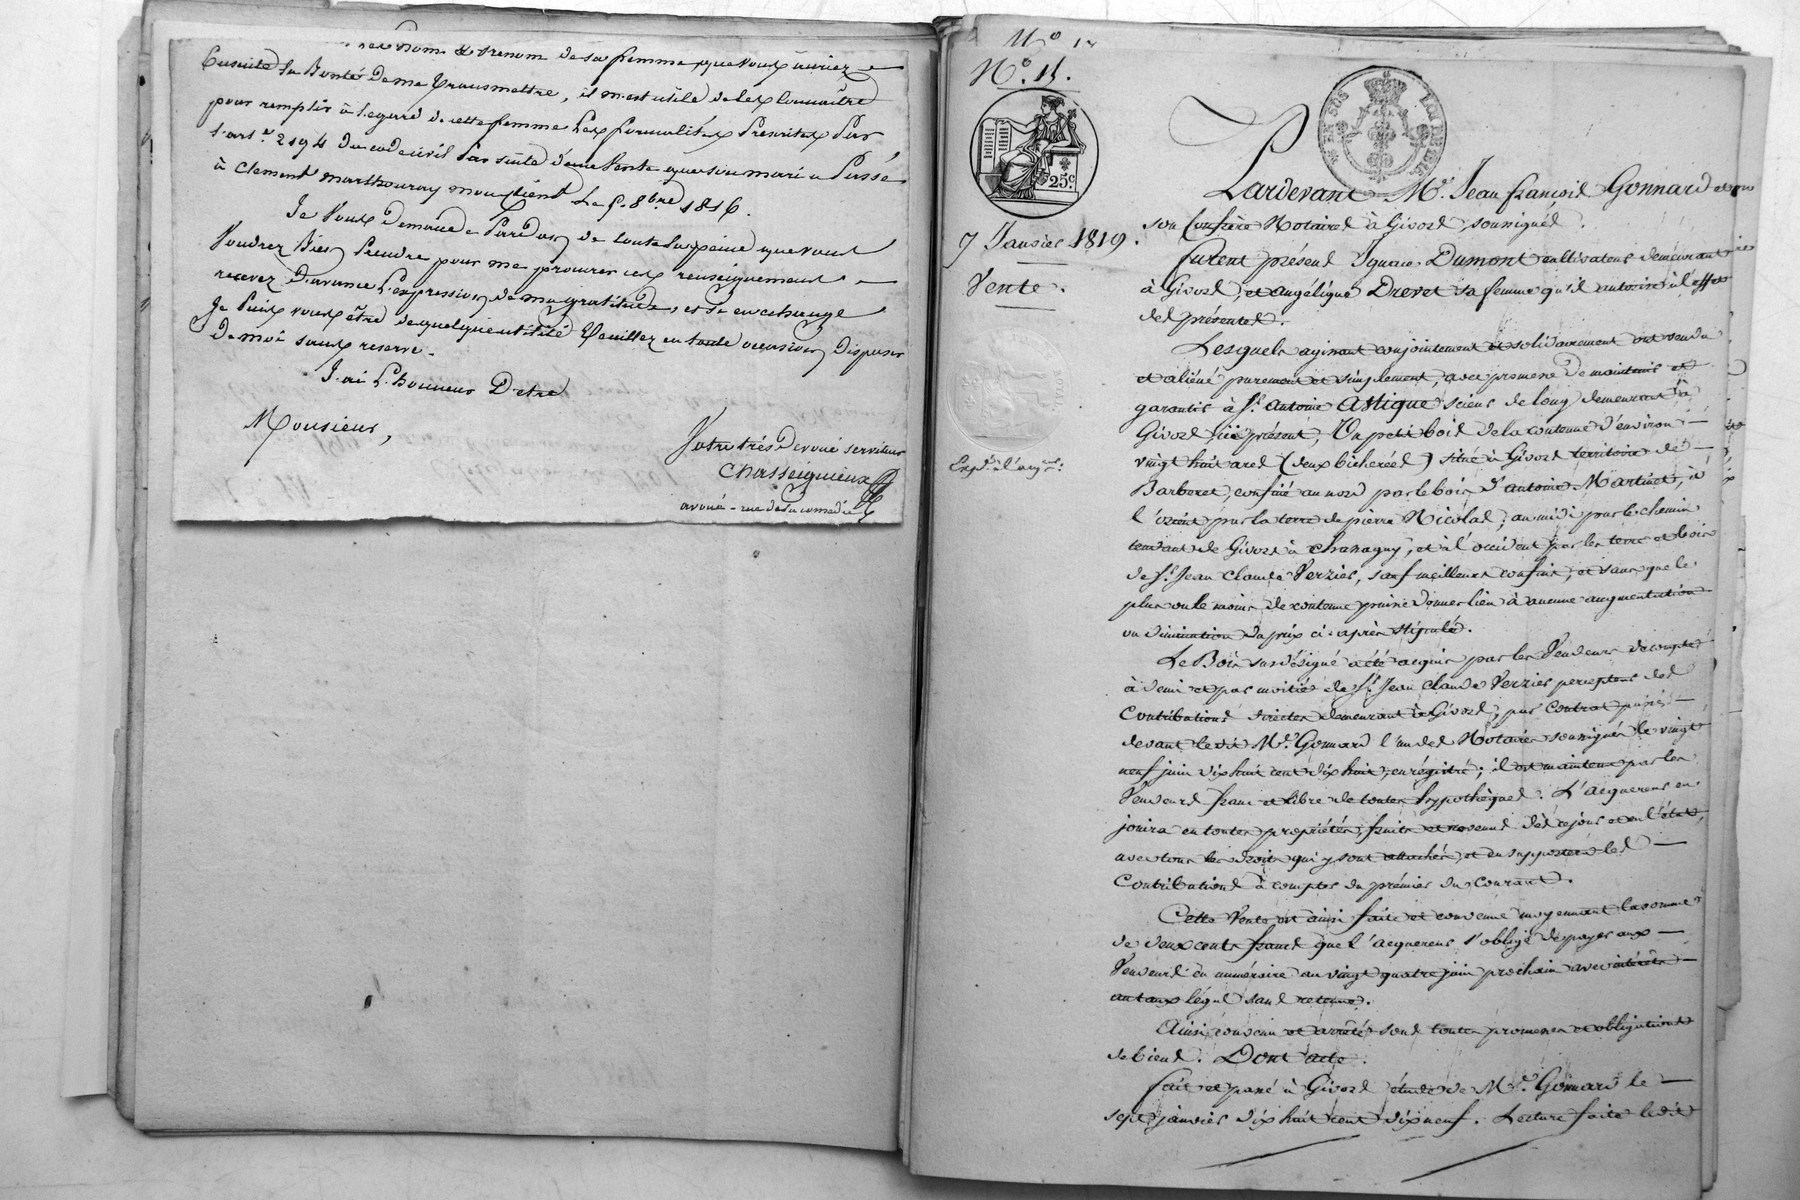 les noms & prenom de sa femme que vous auriez
Ensuite la Bonté de me transmettre, il m'est utile de les connaître
pour remplir à l'egard de cette femme les formalités prescrites par
l'art. 2194 du code civil par suite d'une vente que son mari a passé
à Clement marthouray mon client le 5. 8bre 1816.
Je vous demande pardon de toute la peine que vous
voudrez bien prendre pour me procurer ces renseignements
recevez d'avance l'expression de ma gratitude, et si en echange
Je puis vous être de quelque utilité veuillez en toute occasion disposer
de moi sans reserve.
J'ai l'honneur D'etre
Monsieur,
Votre très devoué serviteur
Chasseignieux
avoué - rue de la comedie
N°. 11.
25c
7 Janvier 1819.
Vente.
Pardevant Me. Jean françois Gonnard et
son Confrère Notaires à Givors, soussignés.
furent présens Ignace Dumont cultivateur demeurant
à Givors, et angélique Drevet sa femme qu'il autorise à l'effet
des présentes.
Lesquels agissant conjointement et solidairement ont vendu
et aliéné purement et simplement, avec promesse de maintenir et
garantir à Sr. antoine Astique scieur de long demeurant à
Givors, ici présent, Un petit bois de la contenue d'environ
vingt huit ares (deux bicherées) situé à Givors territoire de
Barberet, confiné au nord par le bois d'antoine Martinet, à
l'orient par la terre de pierre Nicolas, au midi par le chemin
tendant de Givors à Chanagny, et à l'occident par les terre et bois
de Sr. Jean Claude Verzier, sauf meilleurs confins, et sans que le
plus ou le moins de contenue puisse donner lieu à aucune augmentation
ou diminution du prix ci-après stipulé.
Le Bois susdésigné a été acquis par les Vendeurs de compte
à demi et par moitié de Sr. Jean Claude Verzier percepteur des
Contributions directes demeurant à Givors, par Contrat passé
devant ledit Me. Gonnard l'un des Notaires soussignés le vingt
neuf juin dix huit cent dix huit, enrégistré; il est maintenu par les
Vendeurs franc et libre de toutes hypothèques. L'acquereur en
jouira en toutes propriétés, fruits et revenus dès ce jour et en l'état,
avec tous les droits qui y sont attachés, et en supportera les
Contributions à compter du prémier du Courant.
Cette Vente est ainsi faite et convenue moyennant la somme
de deux cents francs que l'acquereur s'oblige de payer aux
Vendeurs en numéraire au vingt quatre juin prochain avec intérêts
au taux légal sans retenue.
Ainsi convenu et arrêté sous toutes promesses et obligations
de biens. Dont acte.
fait et passé à Givors étude de Me. Gonnard le
sept janvier dix huit cent dix neuf. Lecture faite ledit